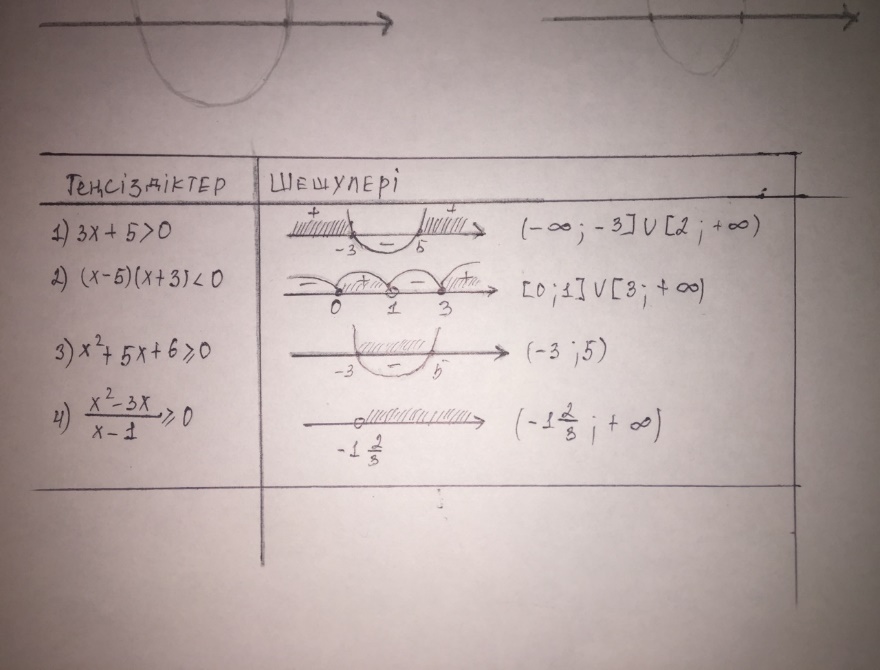 Теңсіздіктер Шешулері
1) 3x + 5 > 0 + − + -3 5 (-∞; -3] ∪ [2; +∞)
2) (x-5)(x+3) < 0 − + − + 0 1 3 [0;1] ∪ [3; +∞)
3) x² + 5x + 6 ⩾ 0 − -3 5 (-3;5)
4) \frac{x²-3x}{x-1} ⩾ 0 -1 2/3 (-1 2/3; +∞)